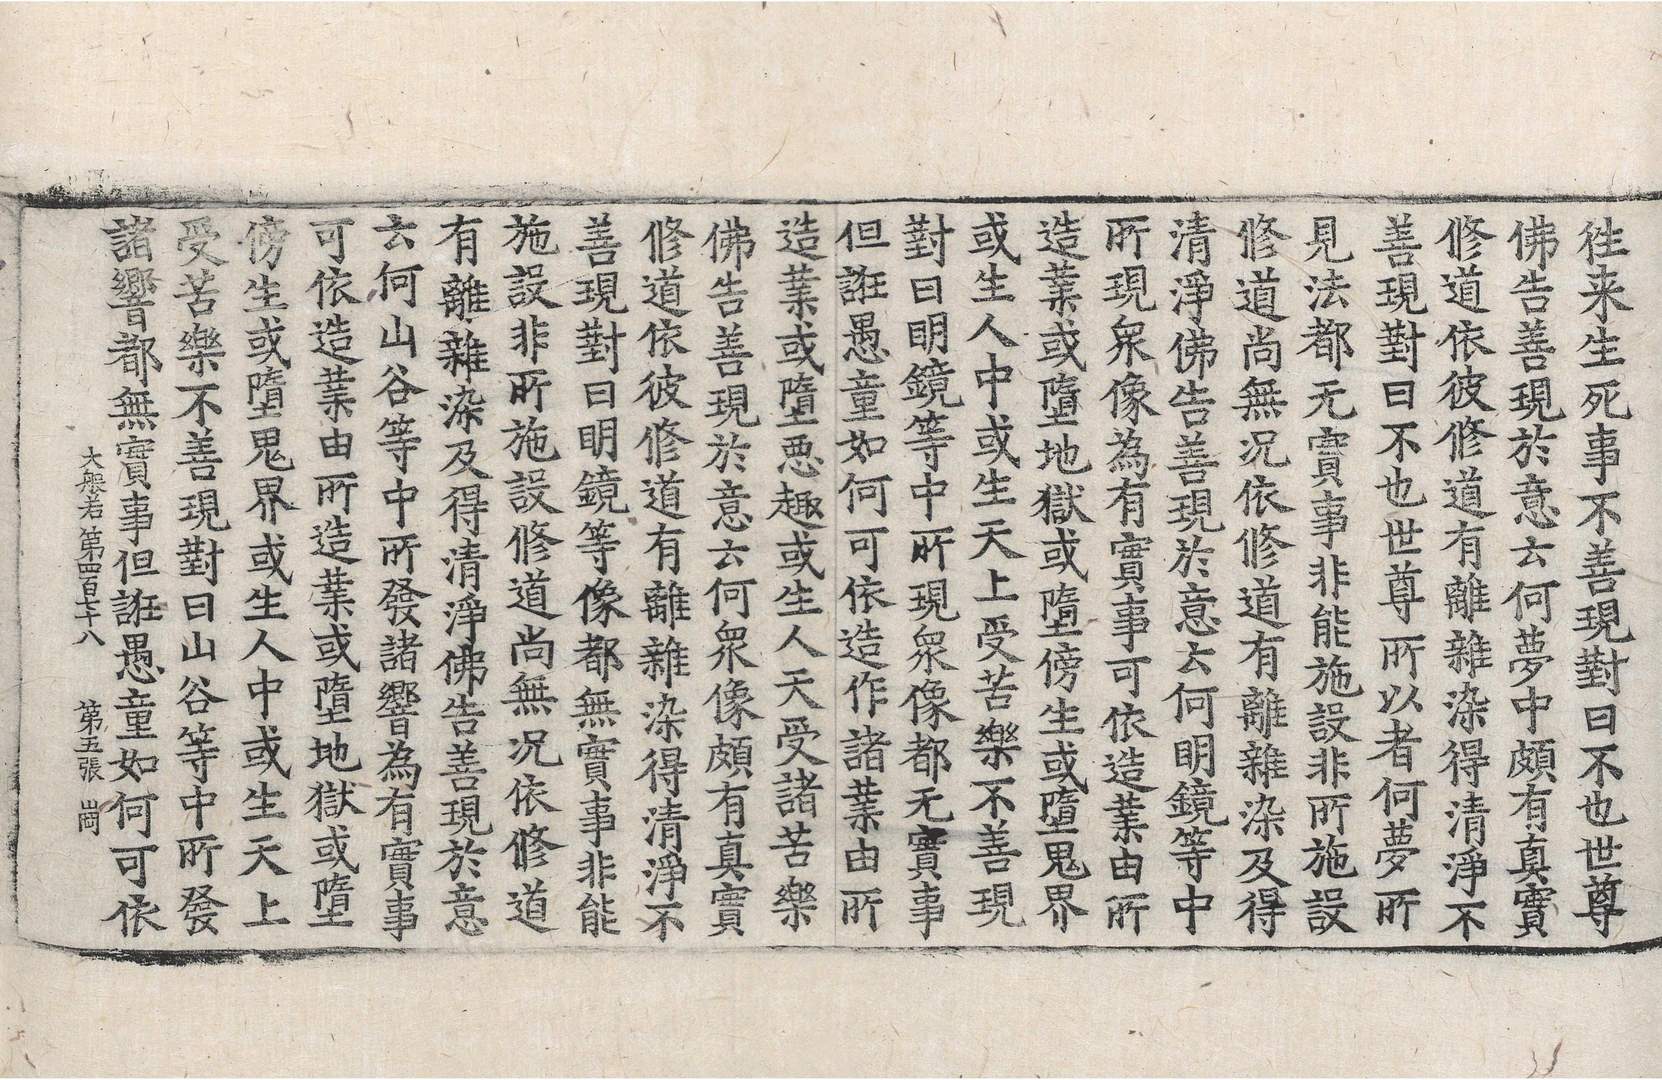 往来生死事不善現對曰不也世尊
佛告善現於意云何夢中頗有真實
修道依彼修道有離雜染得清淨不
善現對曰不也世尊所以者何夢所
見法都无實事非能施設非所施設
修道尚無况依修道有離雜染及得
清淨佛告善現於意云何明鏡等中
所現衆像為有實事可依造業由所
造業或墮地獄或墮傍生或墮鬼界
或生人中或生天上受苦樂不善現
對曰明鏡等中所現衆像都无實事
但誑愚童如何可依造作諸業由所
造業或墮惡趣或生人天受諸苦樂
佛告善現於意云何衆像頗有真實
修道依彼修道有離雜染得清淨不
善現對曰明鏡等像都無實事非能
施設非所施設修道尚無况依修道
有離雜染及得清淨佛告善現於意
云何山谷等中所發諸響為有實事
可依造業由所造業或墮地獄或墮
傍生或墮鬼界或生人中或生天上
受苦樂不善現對曰山谷等中所發
諸響都無實事但誑愚童如何可依
大般若第四百七十八 第五張 崗